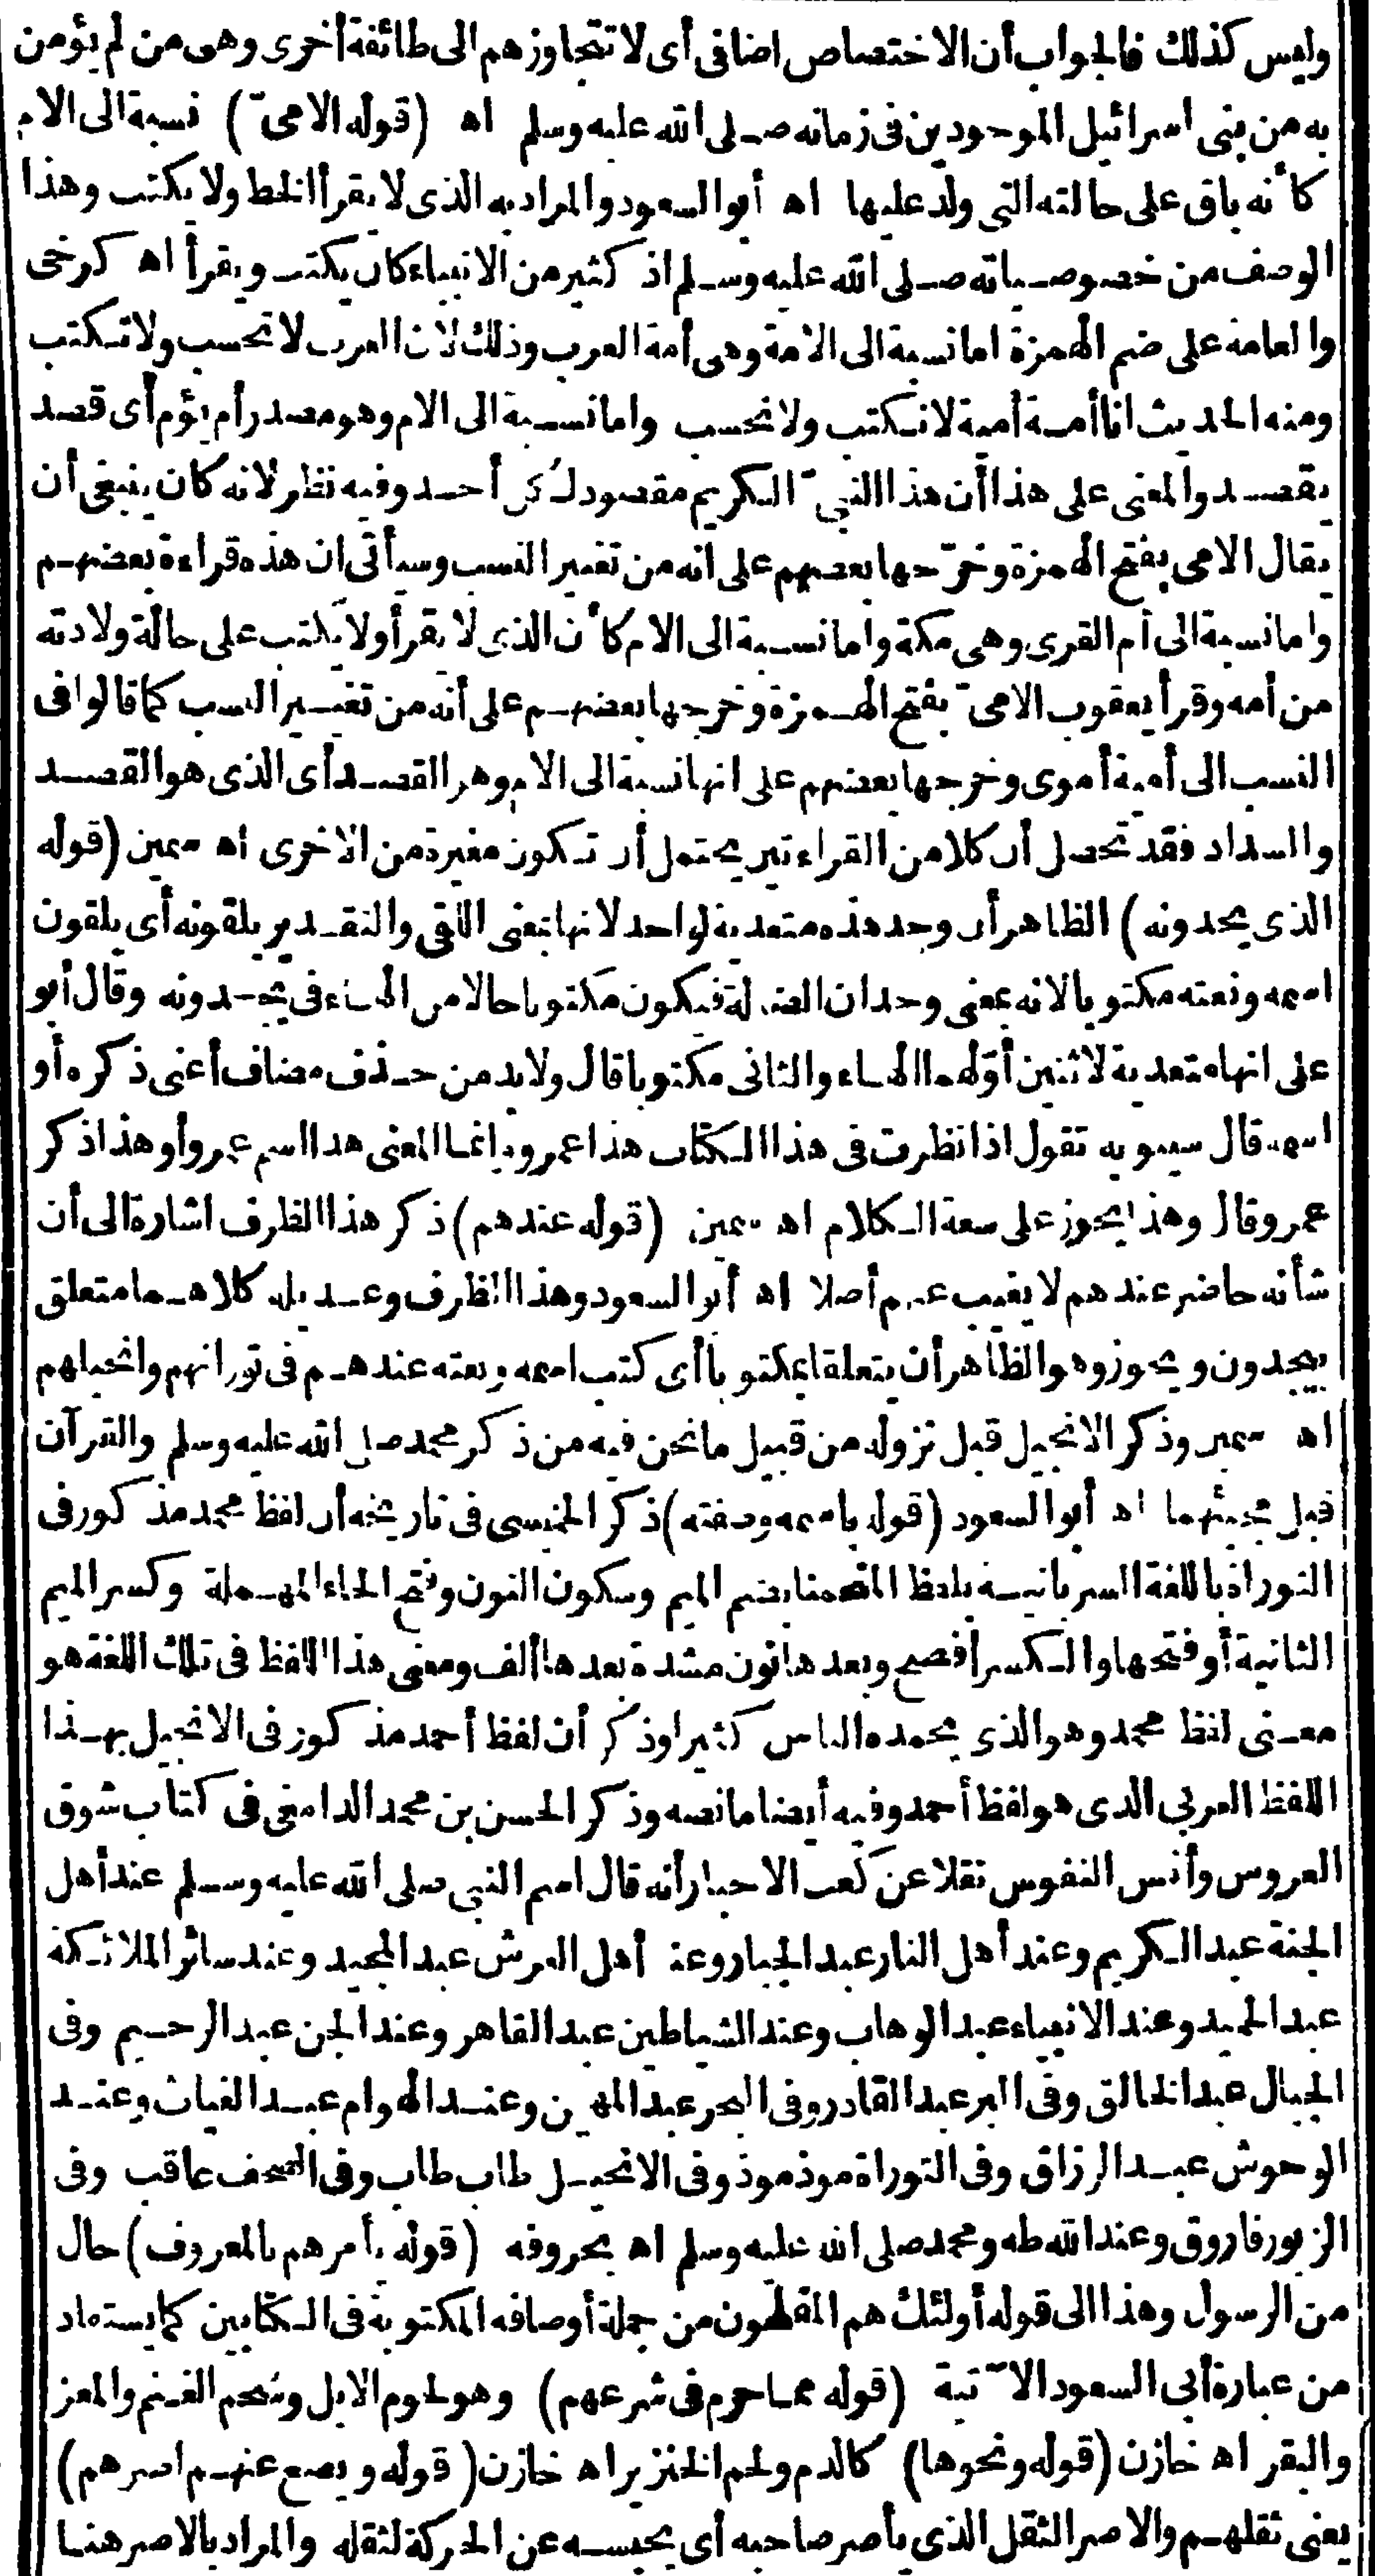 وليس كذلك فالجواب أن الاختصاص اضافى أى لا تتجاوزهم الى طائفة أخرى وهى من لم يؤمن
به من بنى اسرائيل الموجودين فى زمانه صلى الله عليه وسلم اه (قوله الامىّ) نسبة الى الام
كأنه باق على حالته التى ولد عليها اه أبو السعود والمراد به الذى لا يقرأ الخط ولا يكتب وهذا
الوصف من خصوصياته صلى الله عليه وسلم اذ كثير من الانبياء كان يكتب ويقرأ اه كرخى
والعامة على ضم الهمزة اما نسبة الى الامة وهى أمة العرب وذلك لان العرب لا تحسب ولا تكتب
ومنه الحديث انا أمة أمية لا نكتب ولا نحسب واما نسبة الى الام وهو مصدر أم يؤم أى قصد
يقصد والمعنى على هذا أن هذا النبىّ الكريم مقصود لكل أحد وفيه نظر لانه كان ينبغى أن
يقال الامى بفتح الهمزة وخرّجها بعضهم على انه من تغيير النسب وسيأتى ان هذه قراءة بعضهم
واما نسبة الى أم القرى وهى مكة واما نسبة الى الام كأن الذى لا يقرأ ولا يكتب على حالة ولادته
من أمه وقرأ يعقوب الامىّ بفتح الهمزة وخرجها بعضهم على أنه من تغيير النسب كما قالوا فى
النسب الى أمية أموى وخرجها بعضهم على انها نسبة الى الام وهو القصد أى الذى هو القصد
والسداد فقد تحصل أن كلا من القراءتين يحتمل أن تكون مغيرة من الاخرى اه سمين (قوله
الذى يجدونه) الظاهر أن وجد هذه متعدية لواحد لانها بمعنى اللقى والتقدير يلقونه أى يلقون
اسمه ونعته مكتوبا لانه بمعنى وجدان الضالة فيكون مكتوبا حالا من الهاء فى يجدونه وقال أبو
على انها متعدية لاثنين أوّلهما الهاء والثانى مكتوبا قال ولا بد من حذف مضاف أعنى ذكره أو
اسمه قال سيبويه تقول اذا نظرت فى هذا الكتاب هذا عمرو وانما المعنى هذا اسم عمرو أو هذا ذكر
عمرو قال وهذا يجوز على سعة الكلام اه سمين (قوله عندهم) ذكر هذا الظرف اشارة الى أن
شأنه حاضر عندهم لا يغيب عنهم أصلا اه أبو السعود وهذا الظرف وعديله كلاهما متعلق
بيجدون ويجوز وهو الظاهر أن يتعلقا بمكتوبا أى كتب اسمه ونعته عندهم فى توراتهم وانجيلهم
اه سمين وذكر الانجيل قبل نزوله من قبيل ما نحن فيه من ذكر محمد صلى الله عليه وسلم والقرآن
قبل مجيئهما اه أبو السعود (قوله باسمه وصفته) ذكر الخميسى فى تاريخه أن لفظ محمد مذكور فى
التوراة باللغة السريانية بلفظ المنحمنا بضم الميم وسكون النون وفتح الحاء المهملة وكسر الميم
الثانية أو فتحها والكسر أفصح وبعدها نون مشددة بعدها ألف ومعنى هذا اللفظ فى تلك اللغة هو
معنى لفظ محمد وهو الذى يحمده الناس كثيرا وذكر أن لفظ أحمد مذكور فى الانجيل بهذا
اللفظ العربى الذى هو لفظ أحمد وفيه أيضا ما نصه وذكر الحسن بن محمد الدامغى فى كتاب شوق
العروس وأنس النفوس نقلا عن كعب الاحبار أنه قال اسم النبى صلى الله عليه وسلم عند أهل
الجنة عبد الكريم وعند أهل النار عبد الجبار وعند أهل العرش عبد المجيد وعند سائر الملائكة
عبد الحميد وعند الانبياء عبد الوهاب وعند الشياطين عبد القاهر وعند الجن عبد الرحيم وفى
الجبال عبد الخالق وفى البر عبد القادر وفى البحر عبد المهيمن وعند الهوام عبد الغياث وعند
الوحوش عبد الرزاق وفى التوراة موذموذ وفى الانجيل طاب طاب وفى الصحف عاقب وفى
الزبور فاروق وعند الله طه ومحمد صلى الله عليه وسلم اه بحروفه (قوله يأمرهم بالمعروف) حال
من الرسول وهذا الى قوله أولئك هم المفلحون من جملة أوصافه المكتوبة فى الكتابين كما يستفاد
من عبارة أبى السعود الآتية (قوله مما حرم فى شرعهم) وهو لحوم الابل وشحم الغنم والمعز
والبقر اه خازن (قوله ونحوها) كالدم ولحم الخنزير اه خازن (قوله ويضع عنهم اصرهم)
يعنى ثقلهم والاصر الثقل الذى يأصر صاحبه أى يحبسه عن الحركة لثقله والمراد بالاصر هنا